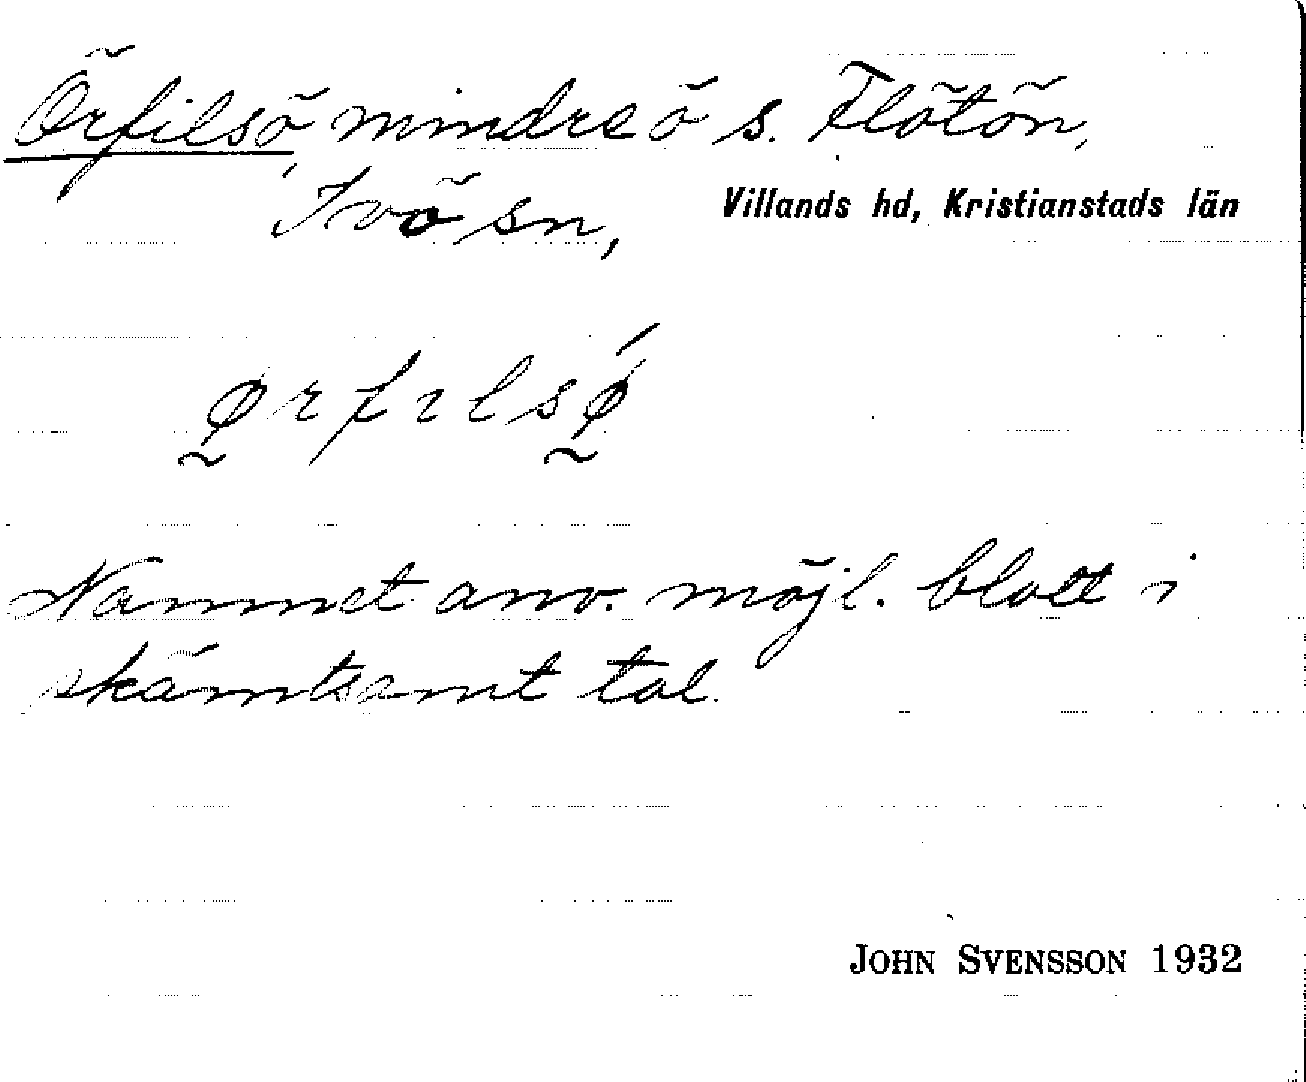 Örfilsö, mindre ö s. Flötön,
Ivö sn, Villands hd, Kristianstads län
ø̰rfɪlsǿ̰
Namnet anv. möjl. blott i
skämtsamt tal.
JOHN SVENSSON 1932